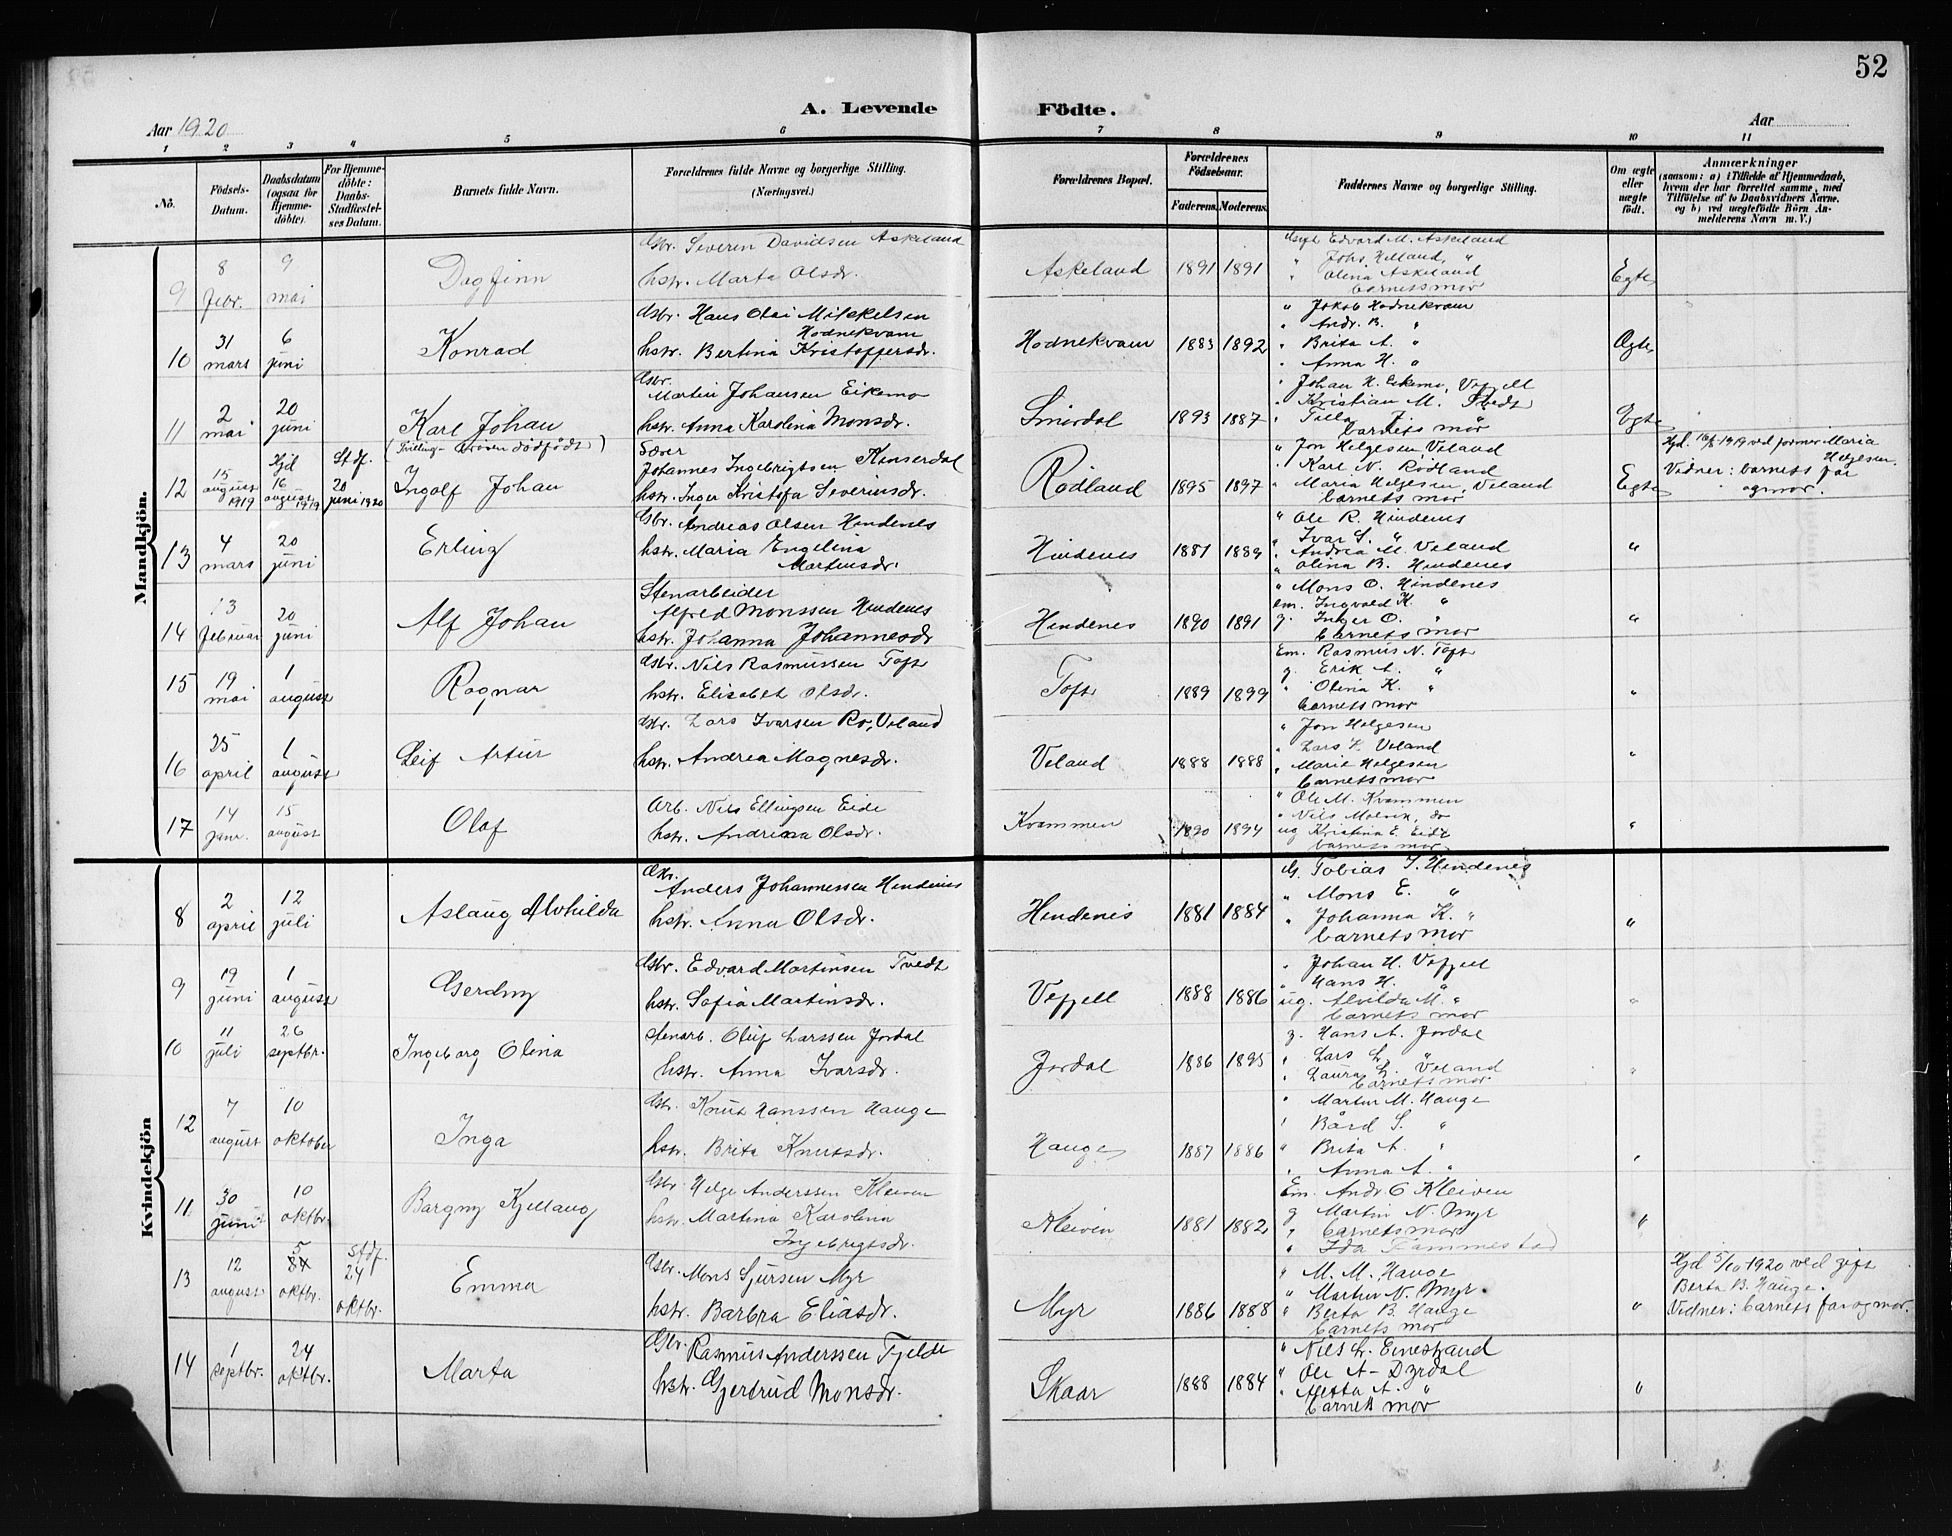 52
A. Levende Födte.
Aar 1920
Aar
1 2 3 4 5 6 7 8 9 10 11
No.
Födsels-Datum.
Daabsdatum (ogsaa for Hjemme-döbte).
For Hjemme-döbte: Daabs-Stadfæstel-ses Datum.
Barnets fulde Navn.
Forældrenes fulde Navne og borgerlige Stilling. (Næringsvei.)
Forældrenes Bopæl.
Forældrenes Födselsaar.
Faderens. Moderens.
Faddernes Navne og borgerlige Stilling.
Om ægte eller uægte födt.
Anmærkninger
(saasom: a) i Tilfælde af Hjemmedaab, hvem der har forrettet samme, med Tilföielse af to Daabsvidners Navne, og b) ved uægtefödte Börn An-melderens Navn m. V.)
Mandkjön.
9 8 febr. 9 mai Dagfinn
Gbr. Severin Davidsen Askeland
hstr. Marta Olsdr.
Askeland 1891 1891
Edvard M. Askeland
" Johs. Helland, "
" Olina Askeland
barnets mor
Egte
10 31 mars 6 juni Konrad
Gbr. Hans Olai Mikkelsen Hodnekvam
hstr. Bertina Kristoffersdr.
Hodnekvam 1883 1892
" Jakob Hodnekvam
" Andr. B. "
" Brita A. "
" Anna H. "
Egte
11 2 mai 20 juni Karl Johan
(Tvilling- dödfödt)
Gbr. Martin Johansen Eikemo
hstr. Anna Karolina Monsdr.
Smördal 1893 1887
" Johan H. Eikemo, Vefjell
" Kristian M. Tvedt
barnets mor
Egte
12 15 august 1919 Hjd 16 august 1919 Stdf. 20 juni 1920 Ingolf Johan
Johannes Ingebrigtsen Kinserdal
hstr. Inger Kristofa Severinsdr.
Rödland 1895 1897
" Jon Helgesen, Veland
" Karl N. Rödland
" Maria Helgesen, Veland
barnets mor
Egte
Hjd. 16/8 1919 ved jormor Maria Helgesen.
Vidner: barnets far og mor.
13 4 mars 20 juni Erling
Gbr. Andreas Olsen Hindenes
hstr. Maria Engelina Martinsdr.
Hindenes 1881 1889
" Ole R. Hindenes
" Ivar S. "
" Andrea M. Veland
" Olina B. Hindenes
"
14 13 februar 20 juni Alf Johan
Stenarbeider
Alfred Monssen Hindenes
hstr. Johanna Johannesdr
Hindenes 1890 1891
" Mons O. Hindenes
em. Ingvald K. "
g. Inger O. "
barnets mor
"
15 19 mai 1 august Ragnar
Gbr. Nils Rasmussen Toft
hstr. Elisabet Olsdr.
Toft 1889 1899
Em. Rasmus N. Toft
g. Erik A. "
" Olina K. "
barnets mor
"
16 25 april 1 august Leif Artur
Gbr. Lars Ivarsen Ro, Veland
hstr. Andrea Magnesdr.
Veland 1888 1888
" Jon Helgesen
" Lars I. Veland
" Maria Helgesen
barnets mor
"
17 14 janr. 15 august Olaf
Arb. Nils Ellingsen Eide
hstr. Andrea Olsdr.
Kvammen 1890 1894
" Ole M. Kvammen
" Nils Molvik, do
ug Kristina E. Eide
barnets mor
"
Kvindekjön
8 2 april 12 juli Aslaug Alvhilda
Gbr. Anders Johannessen Hindenes
hstr. Anna Olsdr.
Hindenes 1881 1884
G. Tobias J. Hindenes
" Mons E. "
" Johanna K. "
barnets mor
"
9 19 juni 1 august Gerdny
Gbr. Edvard Martinsen Tvedt
hstr. Sofia Martinsdr.
Vefjell 1888 1886
" Johan H. Vefjell
" Hans H. "
ug. Alvilda M. "
barnets mor
"
10 11 juli 26 septbr. Ingeborg Olina
Stenarb. Oluf Larssen Jordal
hstr. Anna Ivarsdr.
Jordal 1886 1895
g. Hans A. Jordal
" Lars L. "
" Laura L. Veland
barnets mor
"
12 7 august 10 oktober Inga
Gbr. Knut Hanssen Hauge
hstr. Brita Knutsdr.
Hauge 1887 1886
" Martin M. Hauge
" Bård S. "
" Brita A. "
" Anna A. "
"
11 30 juni 10 oktbr. Bargny Kjellaug
Gbr. Helge Anderssen Kleiven
hstr. Martina Karolina Ingebrigtsdr.
Kleiven 1881 1882
Em. Andr O Kleiven
g Martin N. Myr
" barnets mor
" Ida Tammestad
"
13 12 august 5 oktbr. Stdf. 24 oktbr. Emma
Gbr. Mons Sjursen Myr
hstr. Barbra Eliasdr.
Myr 1886 1888
" M. M. Hauge
" Martin N. Myr
" Berta B. Hauge
barnets mor
"
Hjd 5/10 1920 ved gift
Berta B. Hauge.
Vidner: barnets far og mor.
14 1 septbr. 24 oktbr. Marta
Gbr. Rasmus Anderssen Tjelde
hstr. Gjertrud Monsdr.
Skaar 1888 1884
" Nils L. Einestrand
" Ole A- Dyrdal
" Metta A. "
barnets mor
"